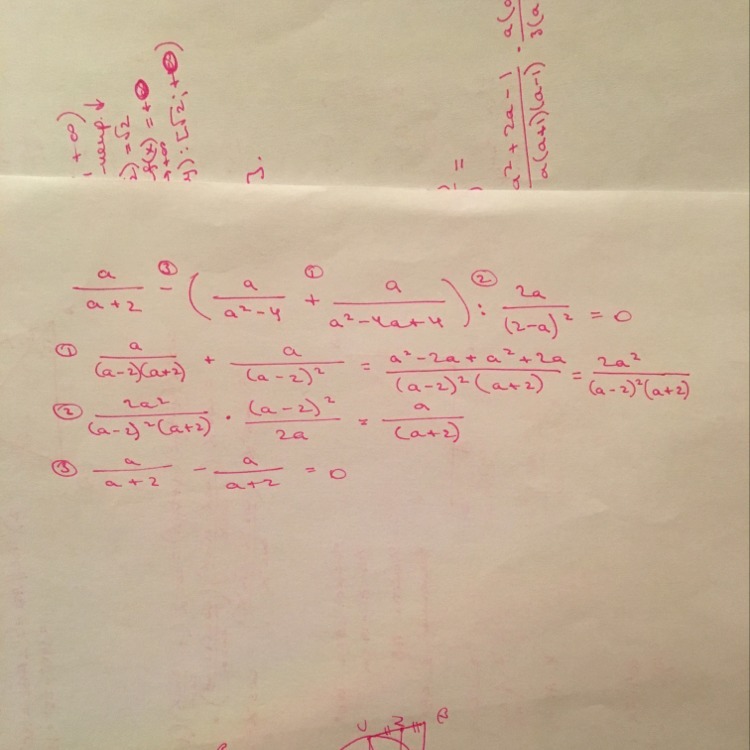 + ∞)
) = √2
f(x) = + ∞
y) : [√2; + ∞)
3.
=
a² + 2a - 1 / a(a+1)(a-1) ·
a / a + 2 -③ ( a / a² - 4 +① a / a² - 4a + 4 ) :② 2a / (2 - a)² = 0
① a / (a-2)(a+2) + a / (a-2)² = a² - 2a + a² + 2a / (a-2)² (a+2) = 2a² / (a-2)² (a+2)
② 2a² / (a-2)² (a+2) · (a-2)² / 2a = a / (a+2)
③ a / a + 2 - a / a + 2 = 0